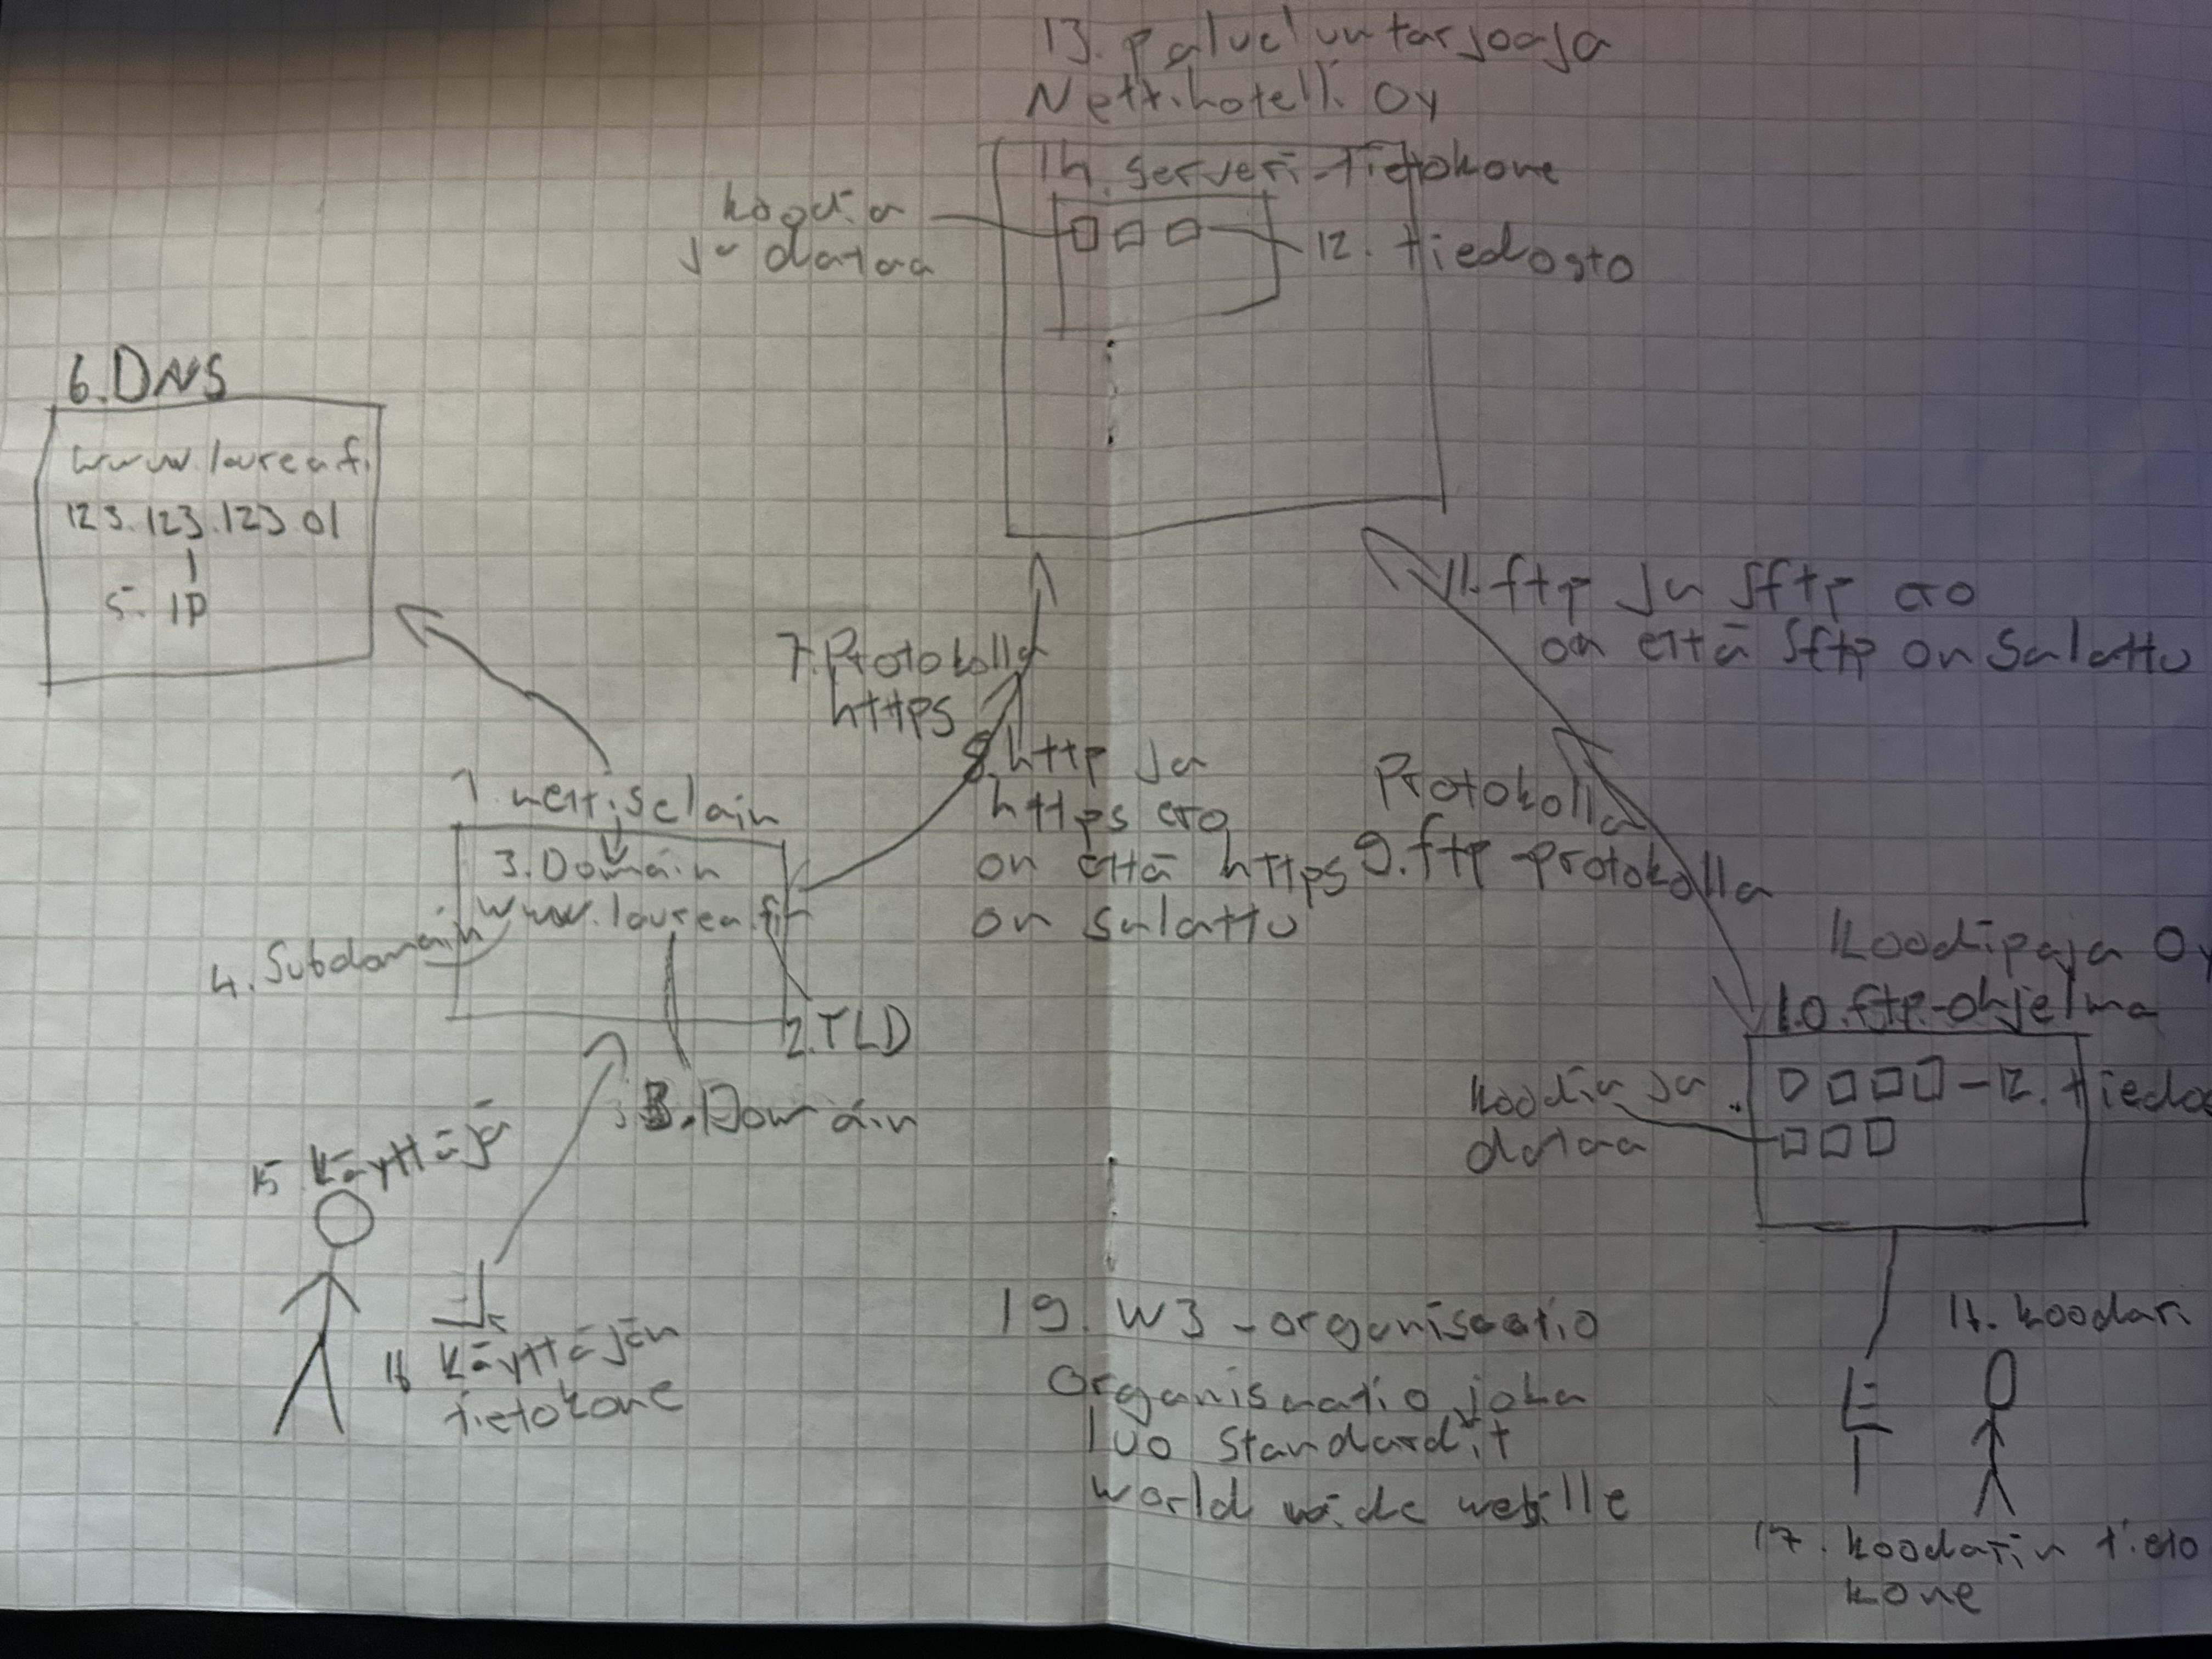 13. palveluntarjoaja
Nettihotelli Oy
14. serveri-tietokone
koodia
ja dataa
12. tiedosto
6. DNS
www.laurea.fi
123.123.123.01
5. IP
11. ftp ja sftp ero
on että sftp on salattu
7. Protokolla
https
8. http ja
https ero
on että https
on salattu
Protokolla
9. ftp-protokolla
1. nettiselain
3. Domain
www.laurea.fi
4. Subdomain
2. TLD
3. Domain
Koodipaja Oy
10. ftp-ohjelma
koodia ja
dataa
12. tiedos
15. käyttäjä
16 käyttäjän
tietokone
19. W3-organisaatio
organisaatio joka
luo standardit
world wide webille
koodari
17. koodarin tieto
kone